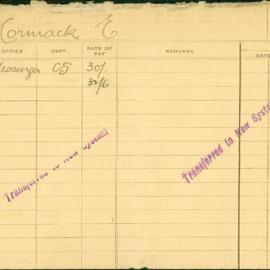 Cormack E
OFFICE DEPT. RATE OF PAY REMARKS DATE
C5 30/.
32/6
Transferred to New System
Transferred to New Syste